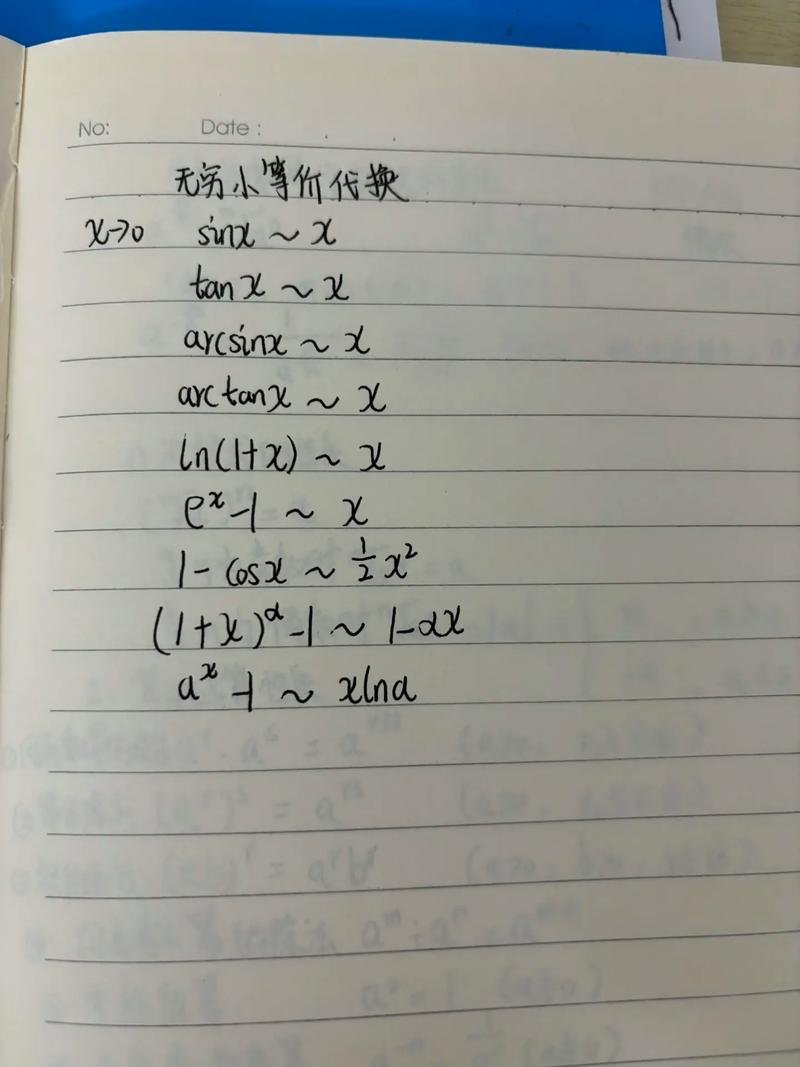 No: Date :
无穷小等价代换
x→0 sinx ~ x
tanx ~ x
arcsinx ~ x
arctanx ~ x
ln(1+x) ~ x
eˣ-1 ~ x
1-cosx ~ ½x²
(1+x)^α-1 ~ 1-αx
aˣ-1 ~ xlna